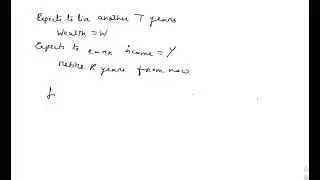 Expects to live another T years
Wealth = W
Expects to earn income = Y
retire R years from now